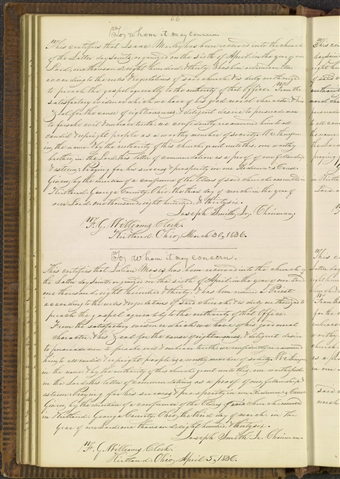 66
To whom it may concern
This certifies that Isaac has been received into the church
of the Latter day Saints, organized on the sixth of April in the year of our
Lord, one thousand eight hundred & thirty & has been ordained an
according to the rules & regulations of said church & is duly authorized
to preach the gospel agreeably to the authority of that office. From the
satisfactory evidence which we have of his good moral character, & his
zeal for the cause of righteousness, & diligent desire to persuade men
to forsake evil & embrace truth, we confidently recommend him to all
candid & upright people as a worthy member of society. We therefore
in the name, & by the authority of this church grant unto this, our worthy
brother in the Lord, this letter of commendation as a proof of our fellowship
& esteem: Praying for his success & prosperity in our Redeemer's Cause.
Given by the direction of a conference of the Elders of said church assembled in
Kirtland, Geauga County, Ohio, the third day of March, in the year of
our Lord one thousand eight hundred & thirty six.
Joseph Smith Jr. Chairman
F. G. Williams Clerk
Kirtland, Ohio, March 30, 1836.
To whom it may concern.
This certifies that Julian Moses has been received into the church of
the Latter day Saints, organized on the sixth of April in the year of our Lord
one thousand, eight hundred & thirty, & has been ordained
according to the rules & regulations of said church & is duly authorized to
preach the gospel agreeably to the authority of that office.
From the satisfactory evidence which we have of his good moral
character, & his zeal for the cause of righteousness, & diligent desire
to persuade men to forsake evil and embrace truth, we confidently recommend
him to all candid & upright people as a worthy member of society. We therefore
in the name, & by the authority of this church, grant unto this, our worthy brother
in the Lord, this letter of commendation as a proof of our fellowship &
esteem: Praying for his success and prosperity in our Redeemer's Cause.
Given by the direction of a conference of the Elders of said church assembled
in Kirtland, Geauga County, Ohio, the third day of March, in the
year of our Lord one thousand eight hundred & thirty six.
Joseph Smith Jr. Chairman
F. G. Williams Clerk
Kirtland, Ohio, April 5, 1836.